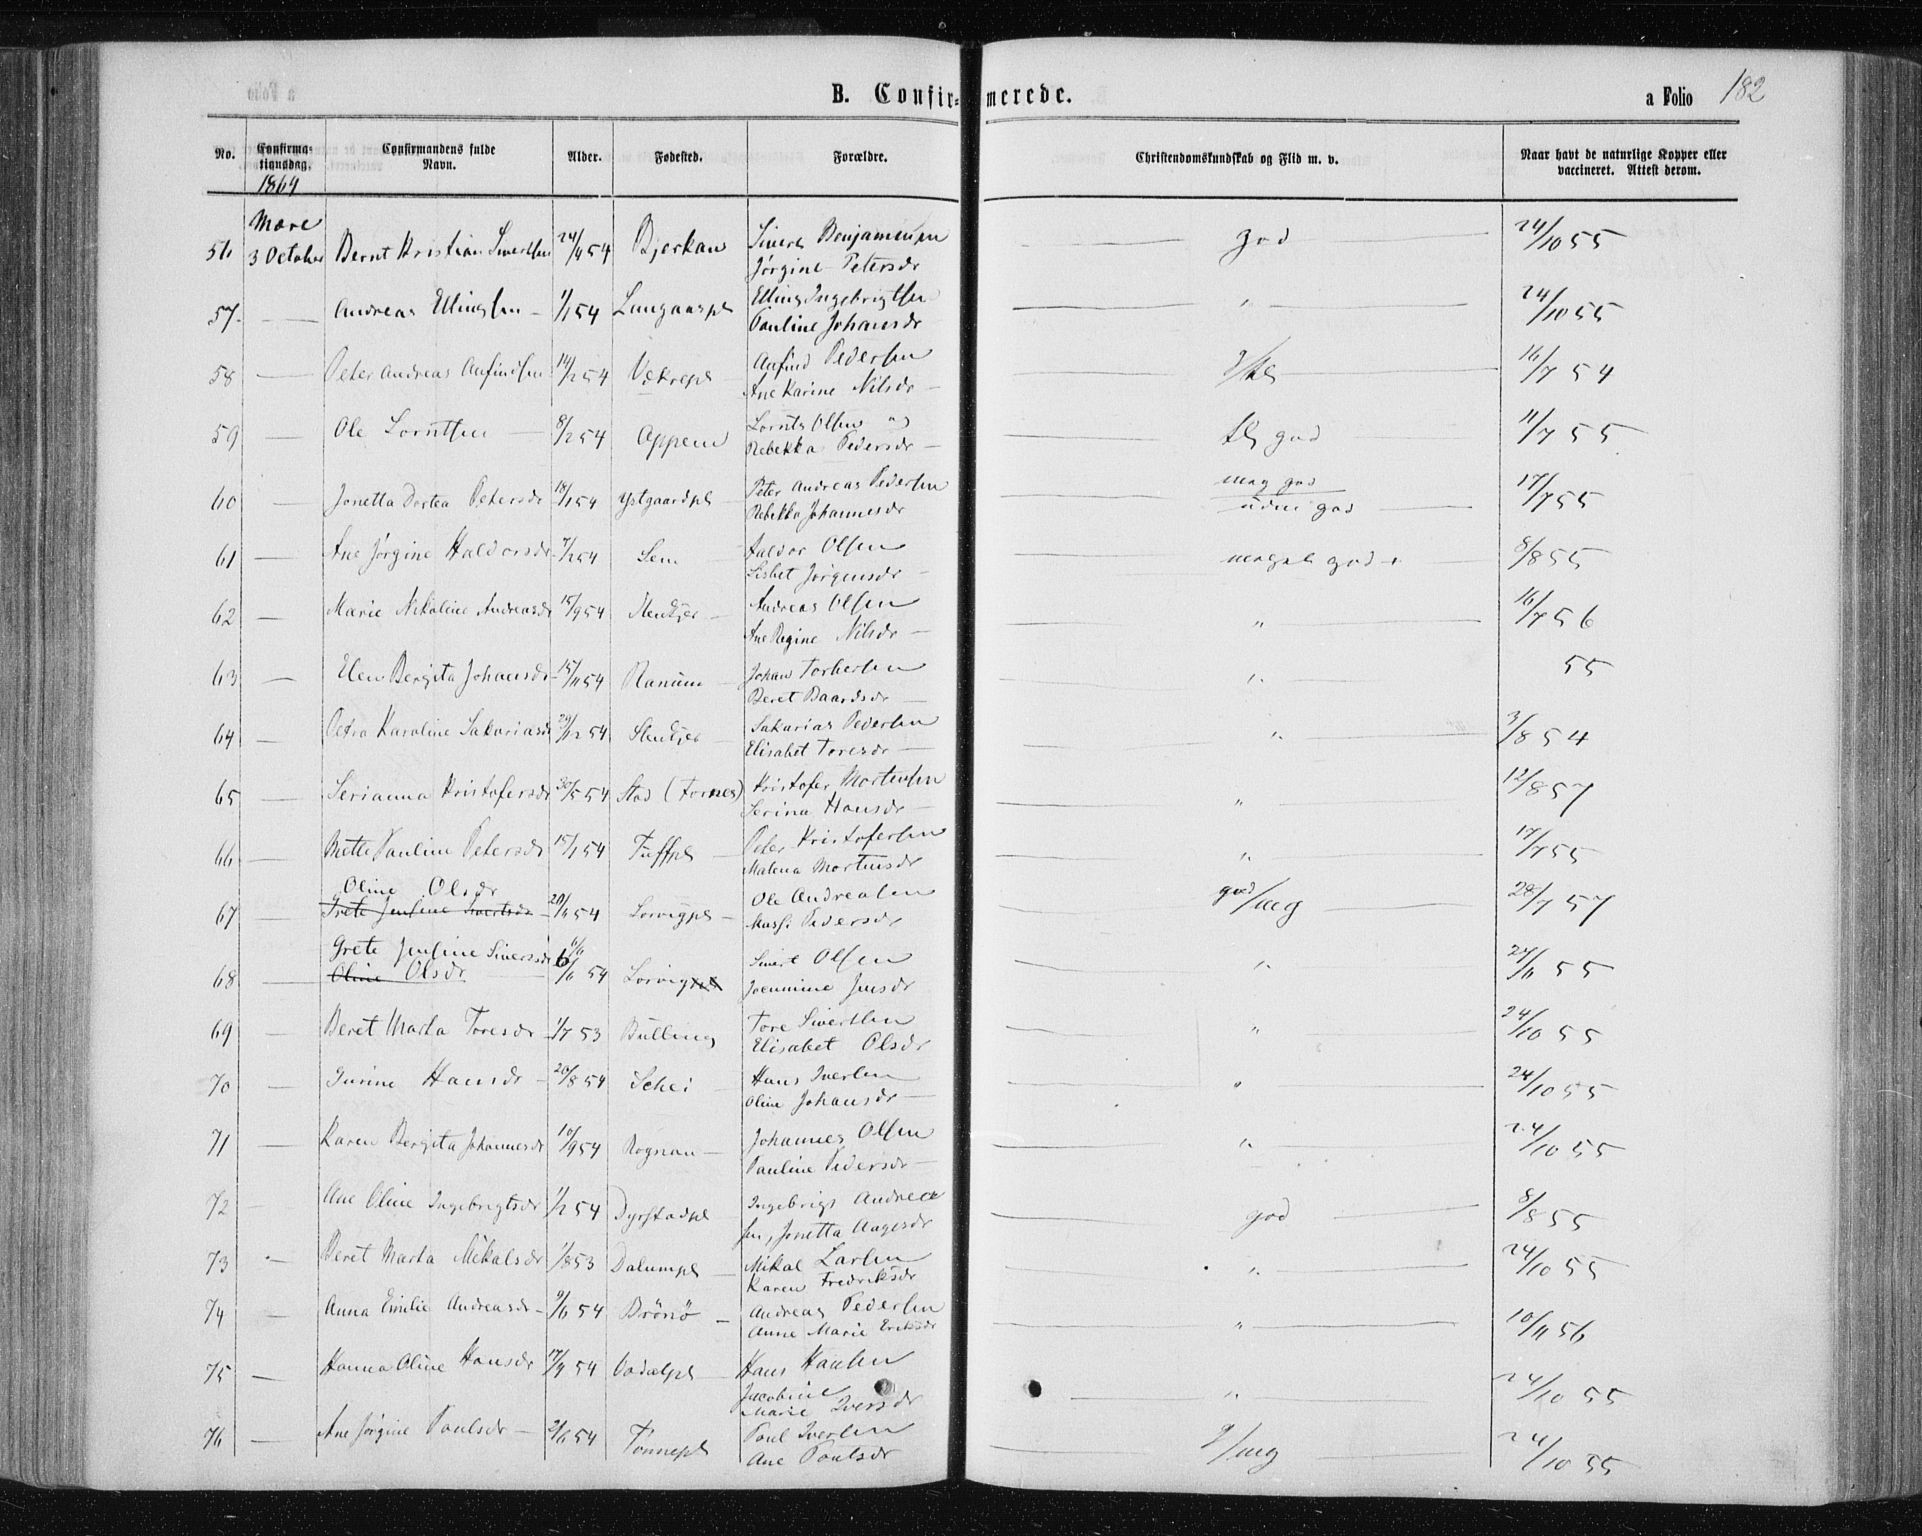 B. Confirmerede. a Folio 182
No. Confirmationsdag. Confirmandens fulde Navn. Alder. Fødested. Forældre. Christendomskundskab og Flid m. v. Naar havt de naturlige Kopper eller vaccineret. Attest derom.
1869
Mære
56 3 October Bernt Kristian Sivertsen 24/4 54 Bjerkan Sivert Benjaminsen god 24/10 55
Jørgine Petersdr
57 — Andreas Ellingsen — 1/1 54 Lungaaspl Elling Ingebrigtsen " 24/10 55
Pauline Johansdr
58 — Peter Andreas Anfindsen 14/2 54 Vækrepl Anfind Pedersen 16/7 54
Ane Karine Nilsdr —
59 — Ole Lorntsen — 8/2 54 Oppem Lornts Olsen og tlg god 11/7 55
Rebekka Pedersdr —
60 — Jonetta Dortea Petersdr 18/1 54 Ystgaardpl Peter Andreas Pedersen meg god 17/7 55
Rebekka Johannesdr udm god
61 — Ane Jørgine Haldorsdr 7/2 54 Sem Haldor Olsen meget god 8/8 55
Lisbet Jørgensdr —
62 — Marie Nikoline Andreasdr 15/9 54 Stenkjer — Andreas Olsen " 16/7 56
Ane Regine Nilsdr —
63 — Elen Bergita Johansdr 15/11 54 Ranum — Johan Torbersen " 55
Beret Baardsdr —
64 — Petra Karoline Sakariasdr 29/12 54 Stenkjer — Sakarias Pedersen " 3/8 54
Elisabet Toresdr —
65 — Serianna Kristofersdr 30/5 54 Stod (Fornes) Kristofer Mortensen " 12/8 57
Serina Hansdr —
66 — Mette Pauline Petersdr 15/1 54 Tuffpl — Peter Kristofersen " 17/7 55
Malena Mortensdr
Oline Olsdr
67 — Grete Jensine Sivertsdr 20/1 54 Lorvigpl — Ole Andreasen god/meg 28/7 57
Massi Pedersdr
Grete Jensine Siversdr 6/6
68 — Oline Olsdr 6/6 54 Lorvigpl Sivert Olsen " 24/11 55
Joenmine Jensdr
69 — Beret Marta Toresdr 1/7 53 Bulling Tore Sivertsen " 24/10 55
Elisabet Olsdr
70 — Gurine Hansdr — 20/8 54 Schei — Hans Iversen " 24/10 55
Oline Johansdr —
71 — Karen Bergita Johannesdr 10/9 54 Rognan — Johannes Olsen " 24/10 55
Pauline Pedersdr —
72 — Ane Oline Ingebrigtsdr 1/2 54 Dyrstadpl Ingebrigt Andrea god 8/8 55
sen, Jonetta Aagesdr
73 — Beret Marta Mikalsdr 1/8 53 Dalumpl — Mikal Larsen " 24/10 55
Karen Fredriksdr
74 — Anna Emilie Andreasdr — 9/6 54 Brönö — Andreas Pedersen " 10/11 56
Anne Marie Eriksdr
75 — Hanna Oline Hansdr 17/4 54 Vadalpl — Hans Hansen " 24/10 55
Jacobine
Marie Iversdr
76 — Ane Jørgine Poulsdr — 2/6 54 Tonnepl Poul Iversen g/meg 24/10 55
Ane Poulsdr